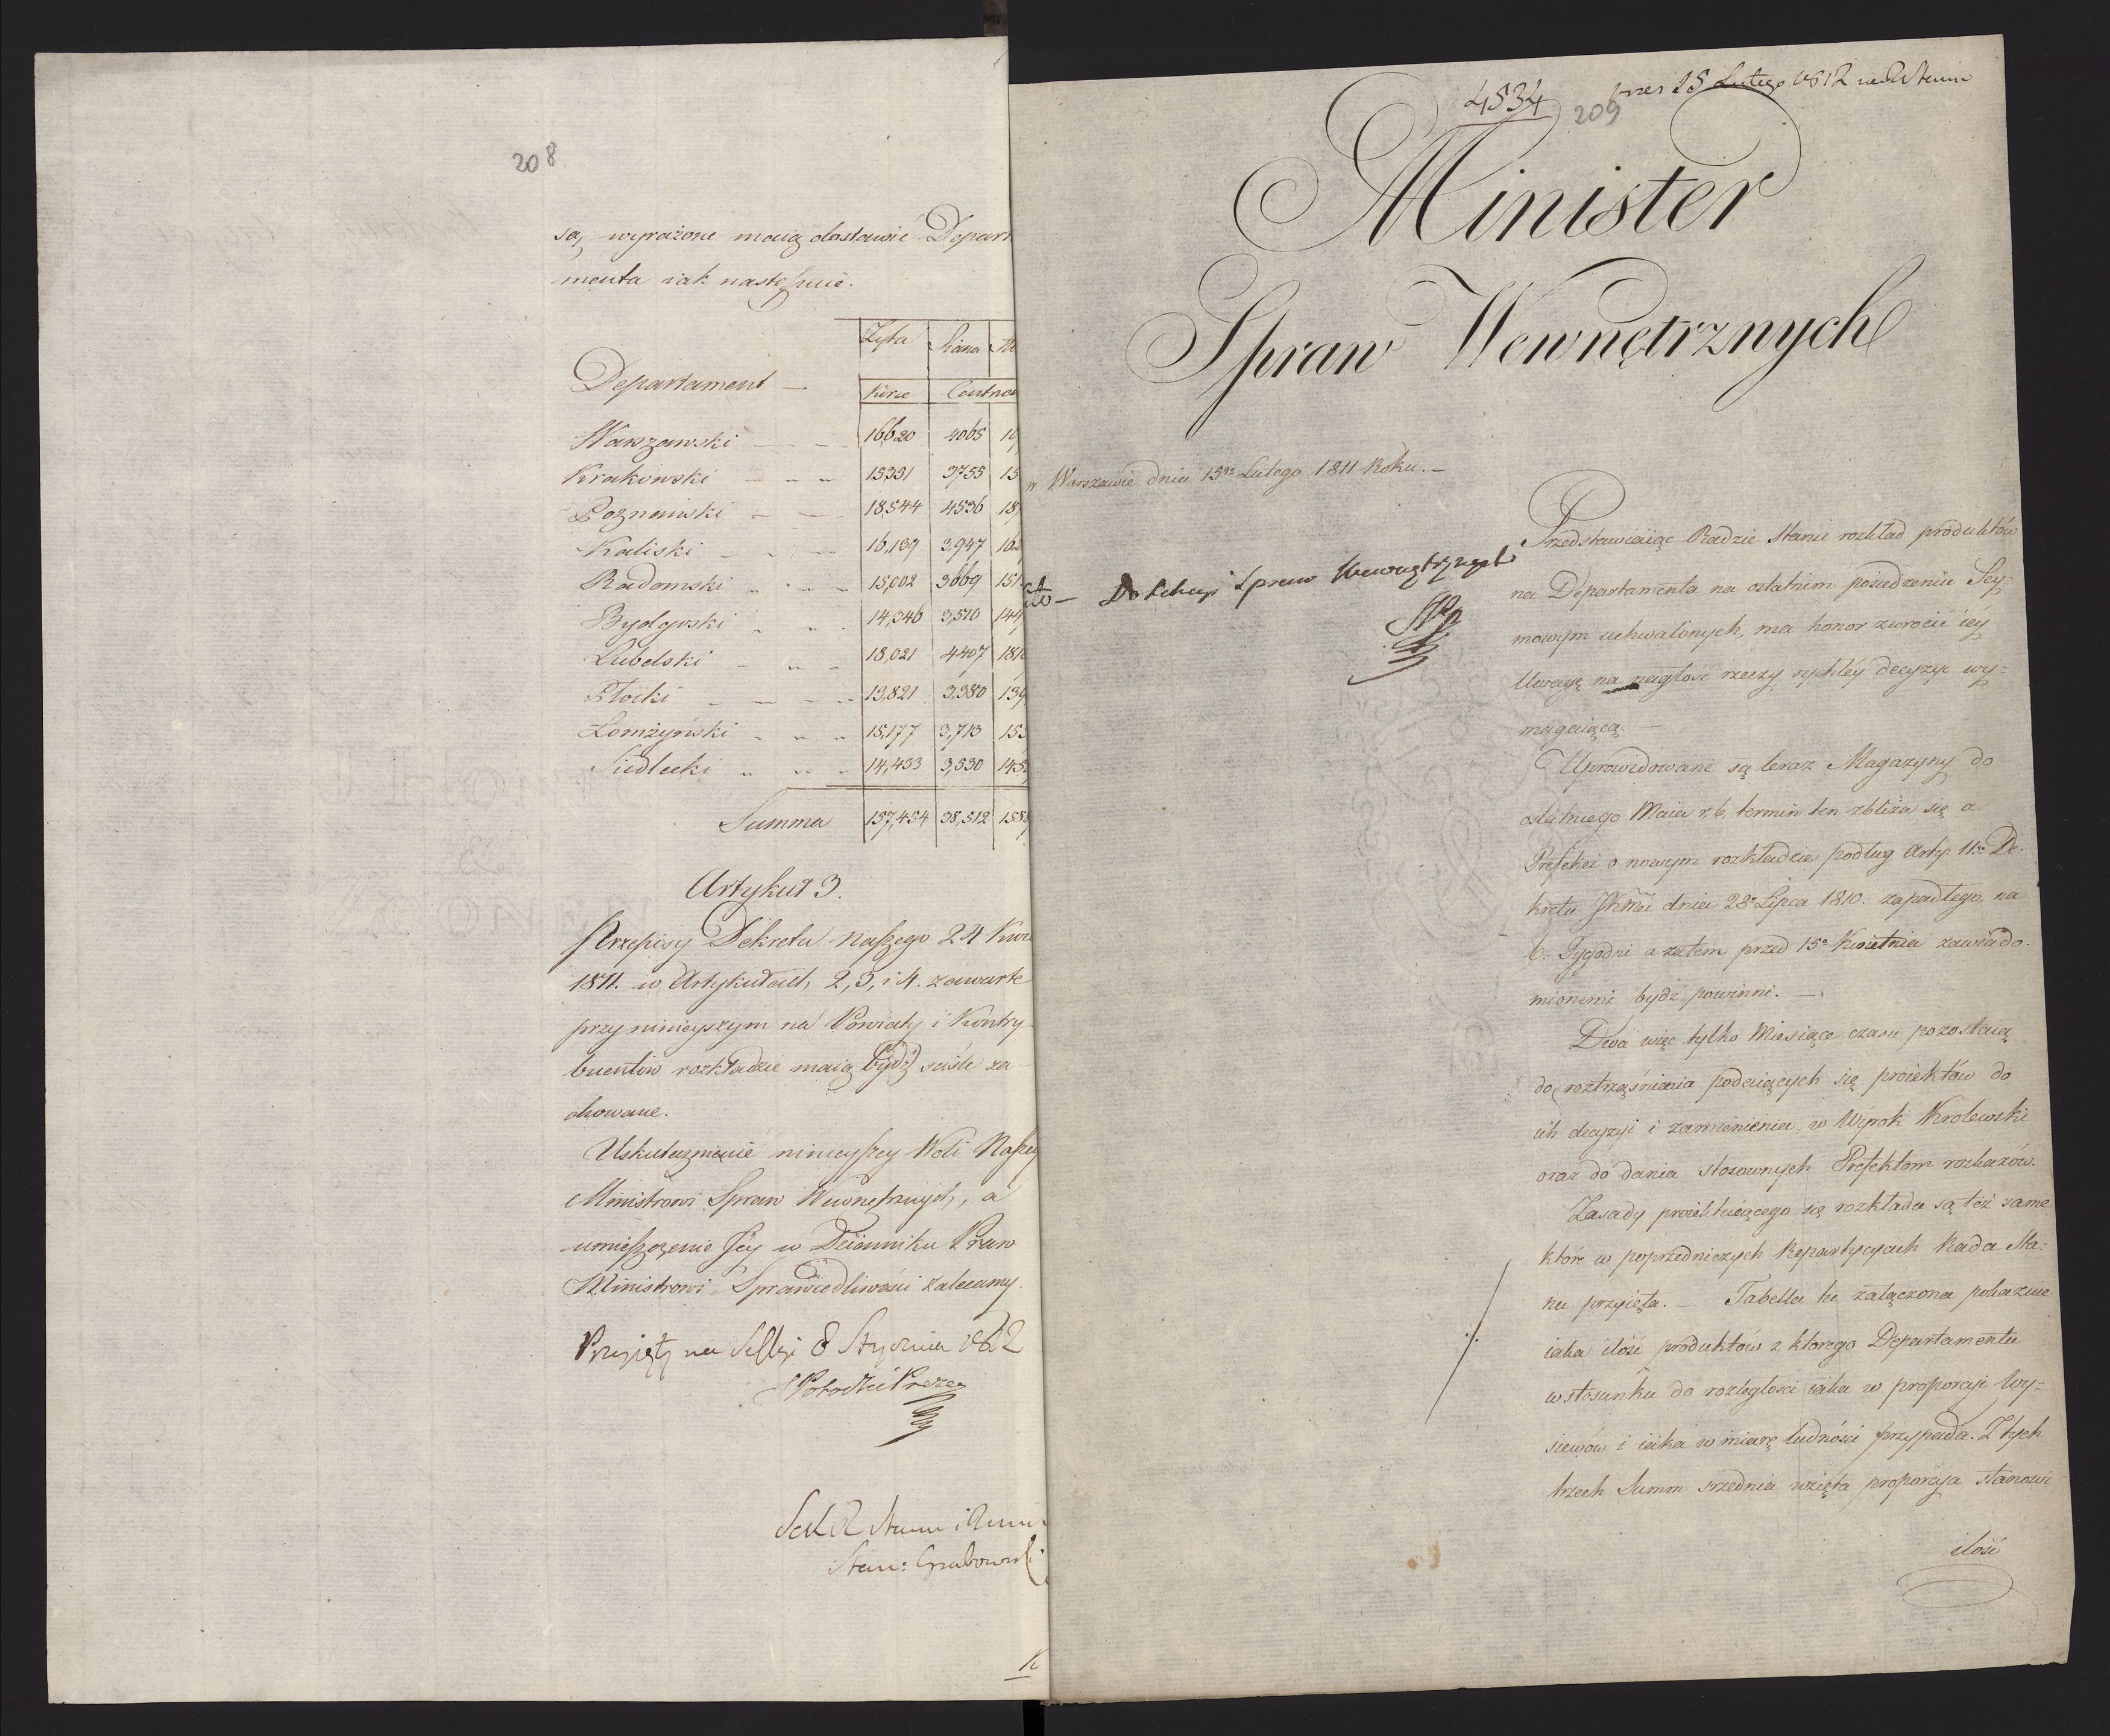 208
są wyrażone maią dostawić Depart
menta iak następuie.
Żyta Siana
Departament Korce Centnar
Warszawski 16620 4065
Krakowski 15351 3755
Poznański 18544 4536
Kaliski 16,139 3,947
Radomski 15,002 3669
Bydgoski 14,346 3,510
Lubelski 18,021 4407
Płocki 13,821 3,380
Łomżyński 15,177 3,713
Siedlecki 14,433 3,530
Summa 157,454 38,512
Artykuł 3.
Przepisy Dekretu Naszego 24 Kwi
1811. w Artykułach, 2, 3, i 4. zawarte
przy ninieyszym na Powiaty i Kontry
buentów rozkładzie maią bydź ściśle za-
chowane.
Uskutecznienie ninieyszey Woli Naszey
Ministrowi Spraw Wewnętrznych, a
umieszczenie Jey w Dzienniku Praw
Ministrowi Sprawiedliwości zalecamy.
Przyięty na Sessyi 8 Stycznia 1812
Potocki Prezes
Stan: Grabowski
4534
209
15 Lutego 1812
Minister
Spraw Wewnętrznych
w Warszawie dnia 15go Lutego 1811 Roku. –
Do Sekcyi Spraw Wewnętrznych
Przedstawiaiąc Radzie Stanu rozkład produktów
na Departamenta na ostatnim posiedzeniu Sey=
mowym uchwalonych, ma honor zwrócić iey
Uwagę na nagłość rzeczy rychłey decyzyi wy=
magaiącą. –
Uprowidowane są teraz Magazyny do
ostatniego Maia r. b. termin ten zbliża się a
Prefekci o nowym rozkładzie podług Arty: 11go De-
kretu JKMci dnia 28o Lipca 1810. zapadłego, na
6. Tygodni a zatem przed 15o Kwietnia zawiado-
mionemi bydź powinni. –
Dwa więc tylko Miesiące czasu pozostaią
do roztrząśnienia podaiących się proiektów do
ich decyzyi i zamienienia w Wyrok Krolewski
oraz do dania stosownych Prefektom rozkazów.
Zasady proiektuiącego się rozkładu są też same
które w poprzedniczych Repartycyach Rada Sta=
nu przyięła. – Tabella tu załączona pokazuie
iaka ilość produktów z ktorego Departamentu
w stosunku do rozległości iaka w proporcyi wy=
siewów i iaka w miarę ludności przypada. Z tych
trzech Summ srzednia wzięta proporcya stanowi
ilość